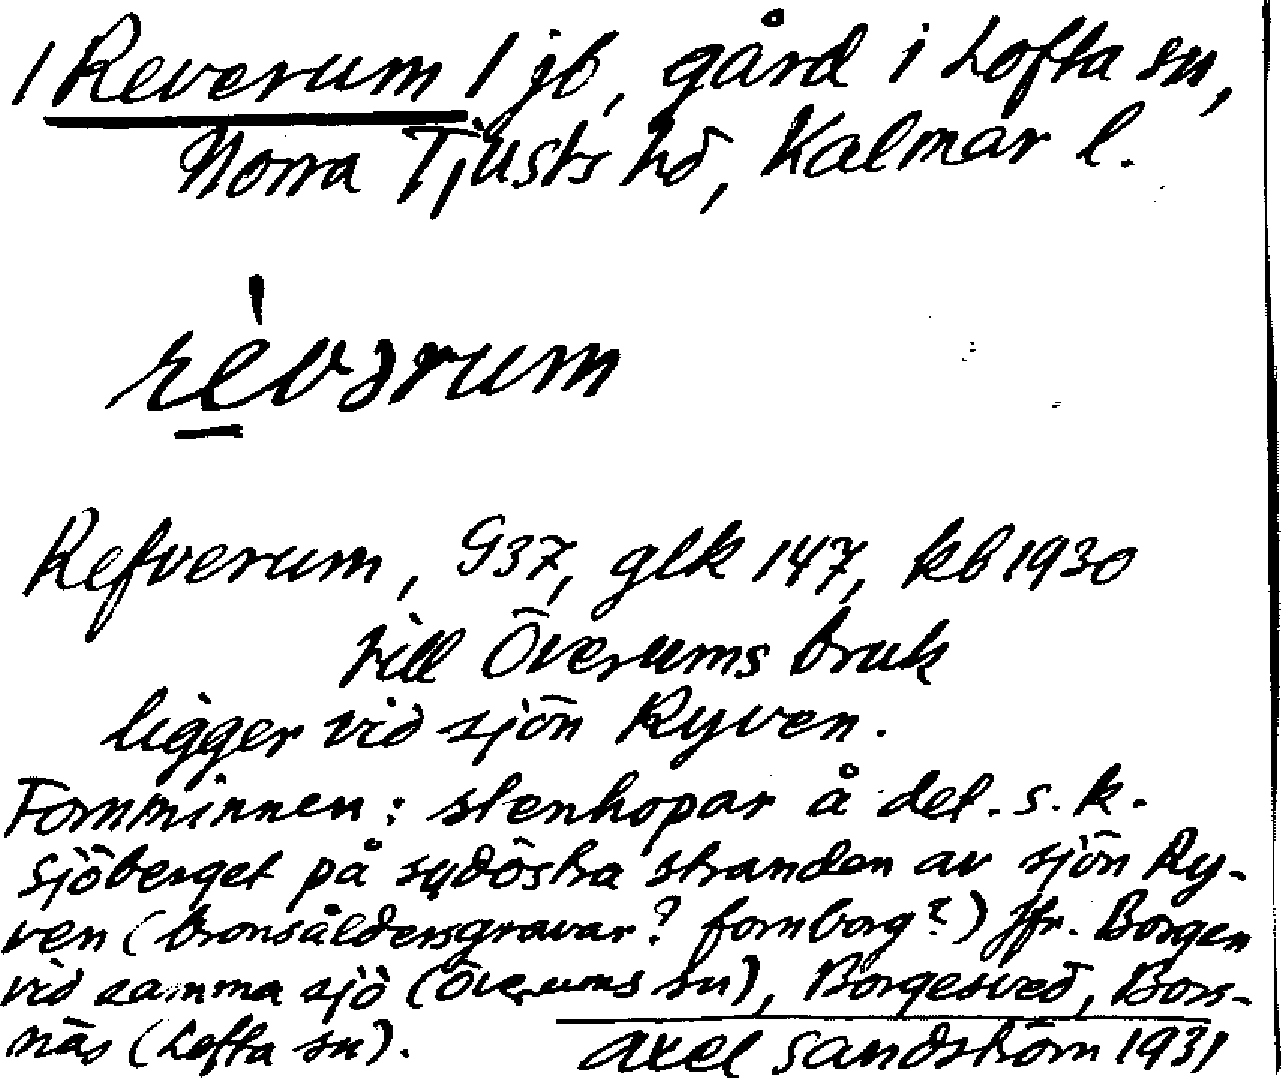 / Reverum / jb, gård i Lofta sn,
Norra Tjusts hd, Kalmar l.
re̱'vərum
Refverum, G37, glk 147, kb 1930
till Överums bruk
ligger vid sjön Ryven.
Fornminnen: stenhopar å det. s. k.
Sjöberget på sydöstra stranden av sjön Ry-
ven (bronsåldersgravar? fornborg?) jfr. Borgen
vid samma sjö (Överums sn), Borgesved, Bors-
näs (Lofta sn).
Axel Sandström 1931